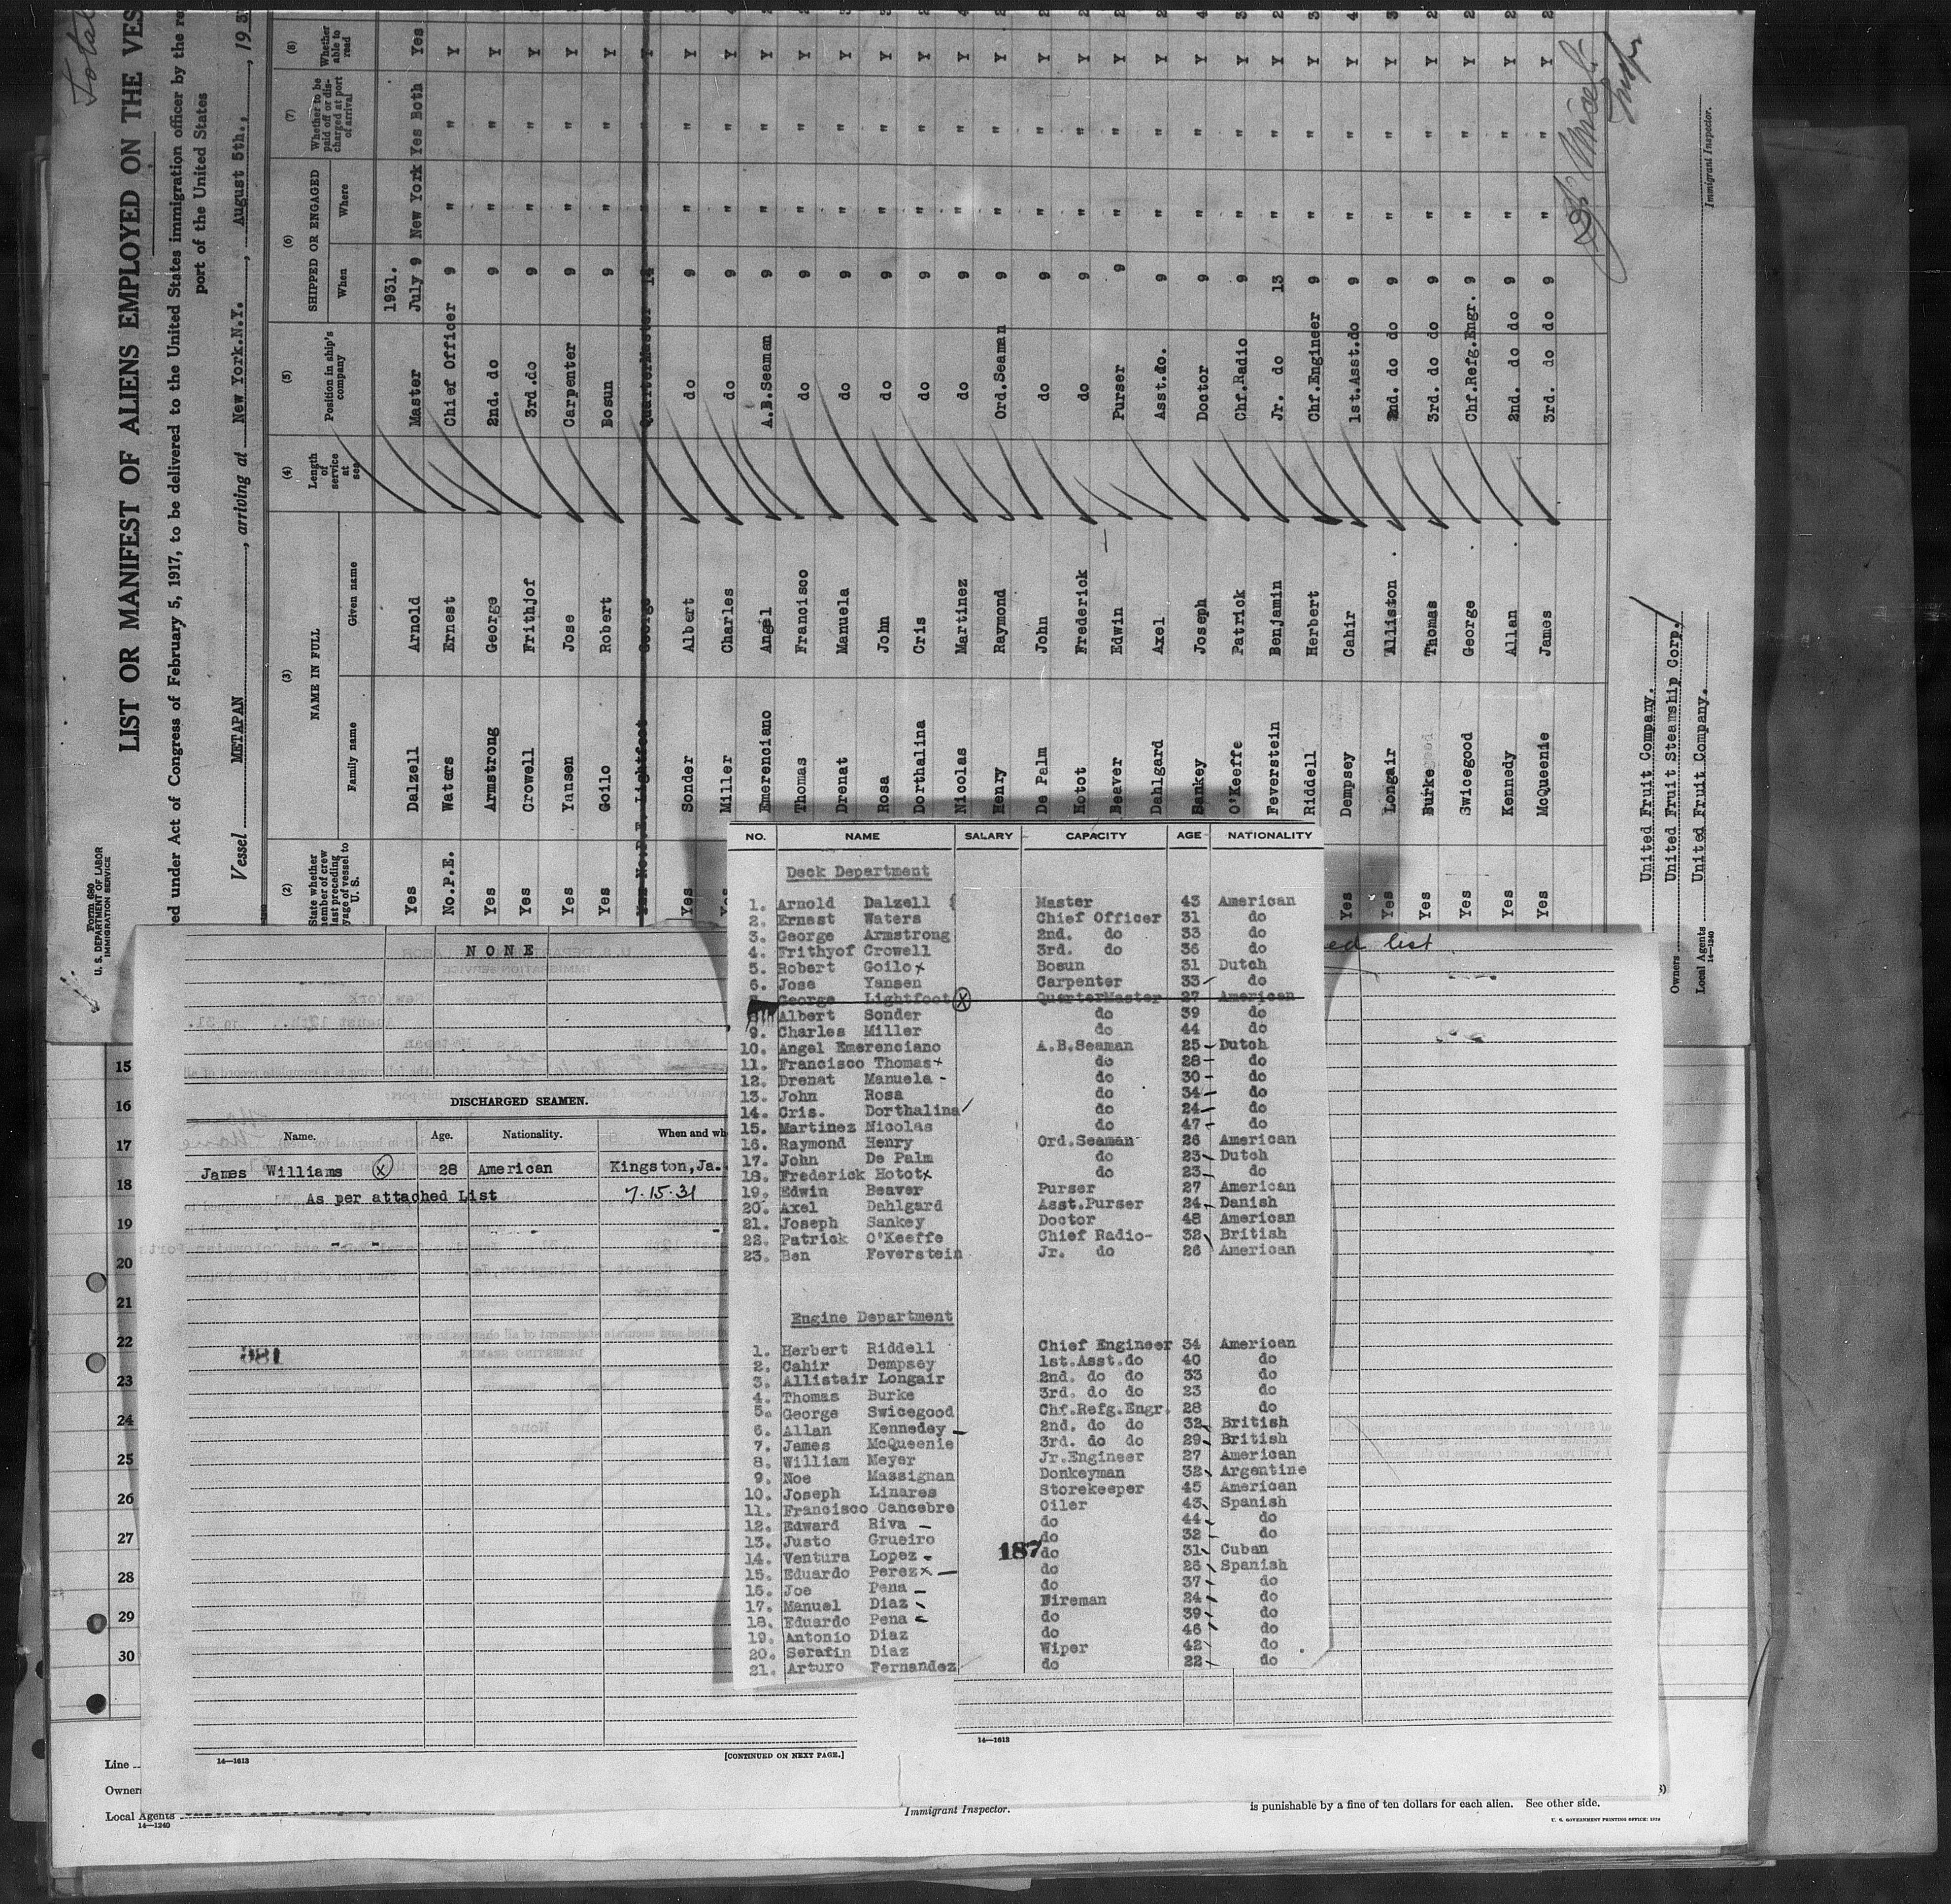 Total
Form 680
U. S. DEPARTMENT OF LABOR
IMMIGRATION SERVICE
LIST OR MANIFEST OF ALIENS EMPLOYED ON THE VES
ed under Act of Congress of February 5, 1917, to be delivered to the United States immigration officer by the re
port of the United States
Vessel METAPAN, arriving at New York.N.Y., August 5th., 193
(2) (3) (4) (5) (6) (7) (8)
State whether member of crew last preceding voyage of vessel to U. S.
NAME IN FULL
Family name Given name
Length of service at sea
Position in ship's company
SHIPPED OR ENGAGED
When Where
Whether to be paid off or discharged at port of arrival
Whether able to read
1931.
Yes Dalzell Arnold Master July 9 New York Yes Both Yes
No.P.E. Waters Ernest Chief Officer 9 " " Y
Yes Armstrong George 2nd. do 9 " " Y
Yes Crowell Frithjof 3rd.do 9 " " Y
Yes Yansen Jose Carpenter 9 " " Y
Yes Goilo Robert Bosun 9 " " Y
Lightfoot George QuarterMaster " " Y
Yes Sonder Albert do 9 " " Y
Miller Charles do 9 " " Y
Emerenciano Angel A.B.Seaman 9 " " Y
Thomas Francisco do 9 " " Y
Drenat Manuela do 9 " " Y
Rosa John do 9 " " Y
Dorthalina Cris do 9 " " Y
Nicolas Martinez do 9 " " Y
Henry Raymond Ord.Seaman 9 " " Y
De Palm John do 9 " " Y
Hotot Frederick do 9 " " Y
Beaver Edwin Purser 9 " " Y
Dahlgard Axel Asst.do. 9 " " Y
Sankey Joseph Doctor 9 " " Y
O'Keeffe Patrick Chf.Radio 9 " " Y
Feverstein Benjamin Jr. do 13 " " Y
Riddell Herbert Chf.Engineer 9 " " Y
Yes Dempsey Cahir 1st.Asst.do 9 " " Y
Yes Longair Alliston 2nd. do do 9 " " Y
Yes Burke Thomas 3rd. do do 9 " " Y
Yes Swicegood George Chf.Refg.Engr. 9 " " Y
Yes Kennedy Allan 2nd. do do 9 " " Y
Yes McQueenie James 3rd. do do 9 " " Y
United Fruit Company.
Owners United Fruit Steamship Corp.
Local Agents United Fruit Company.
14—1240
Immigrant Inspector.
NO. NAME SALARY CAPACITY AGE NATIONALITY
Deck Department
1. Arnold Dalzell Master 43 American
2. Ernest Waters Chief Officer 31 do
3. George Armstrong 2nd. do 33 do
4. Frithyof Crowell 3rd. do 36 do
5. Robert Goilo x Bosun 31 Dutch
6. Jose Yansen Carpenter 33 do
7. George Lightfoot X QuarterMaster 27 American
8. Albert Sonder do 39 do
9. Charles Miller do 44 do
10. Angel Emerenciano A.B.Seaman 25 Dutch
11. Francisco Thomas x do 28 do
12. Drenat Manuela - do 30 do
13. John Rosa do 34 do
14. Cris. Dorthalina do 24 do
15. Martinez Nicolas do 47 do
16. Raymond Henry Ord.Seaman 26 American
17. John De Palm do 23 Dutch
18. Frederick Hotot x do 23 do
19. Edwin Beaver Purser 27 American
20. Axel Dahlgard Asst.Purser 24 Danish
21. Joseph Sankey Doctor 48 American
22. Patrick O'Keeffe Chief Radio- 32 British
23. Ben Feverstein Jr. do 26 American
Engine Department
1. Herbert Riddell Chief Engineer 34 American
2. Cahir Dempsey 1st.Asst.do 40 do
3. Allistair Longair 2nd. do do 33 do
4. Thomas Burke 3rd. do do 23 do
5. George Swicegood Chf.Refg.Engr. 28 do
6. Allan Kennedey 2nd. do do 32 British
7. James McQueenie 3rd. do do 29 British
8. William Meyer Jr.Engineer 27 American
9. Noe Massignan Donkeyman 32 Argentine
10. Joseph Linares Storekeeper 45 American
11. Francisco Cancebre Oiler 43 Spanish
12. Edward Riva do 44 do
13. Justo Grueiro do 32 do
14. Ventura Lopez do 31 Cuban
187
15. Eduardo Perez x do 26 Spanish
16. Joe Pena do 37 do
17. Manuel Diaz Fireman 24 do
18. Eduardo Pena do 39 do
19. Antonio Diaz do 46 do
20. Serafin Diaz Wiper 42 do
21. Arturo Fernandez do 22 do
NONE
DISCHARGED SEAMEN.
Name. Age. Nationality. When and wh
James Williams X 28 American Kingston,Ja.
As per attached List 7-15-31
981
14—1613
[CONTINUED ON NEXT PAGE.]
ed list
14—1613
15
16
17
18
19
20
21
22
23
24
25
26
27
28
29
30
Line
Owner
Local Agents
14—1240
Immigrant Inspector.
is punishable by a fine of ten dollars for each alien. See other side.
U. S. GOVERNMENT PRINTING OFFICE: 1929